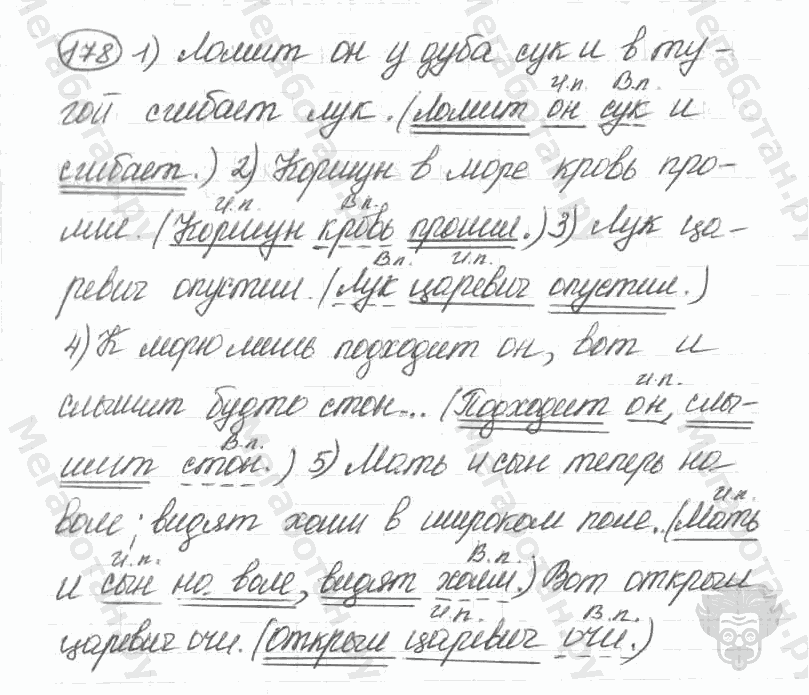 178 1) Ломит он у дуба сук и в ту-
И.п. В.п.
гой сгибает лук. (Ломит он сук и
сгибает.) 2) Коршун в море кровь про-
И.п. В.п.
лил. (Коршун кровь пролил.) 3) Лук ца-
В.п. И.п.
ревич опустил. (Лук царевич опустил.)
4) К морю лишь подходит он, вот и
И.п.
слышит будто стон... (Подходит он, слы-
В.п.
шит стон.) 5) Мать и сын теперь на
И.п.
воле; видят холм в широком поле. (Мать
И.п. В.п.
и сын на воле, видят холм.) Вот открыл
И.п. В.п.
царевич очи. (Открыл царевич очи.)
Мегаботан.ру